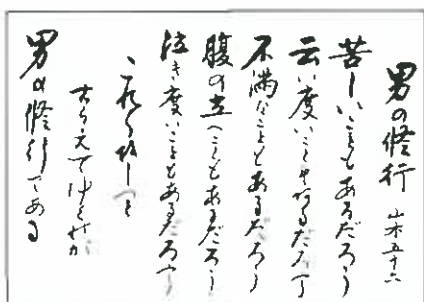 男の修行
山本五十六
苦しいこともあるだろう
云い度いこともあるだろう
不満なこともあるだろう
腹の立つこともあるだろう
泣き度いこともあるだろう
これらをじつと
こらえてゆくのが
男の修行である